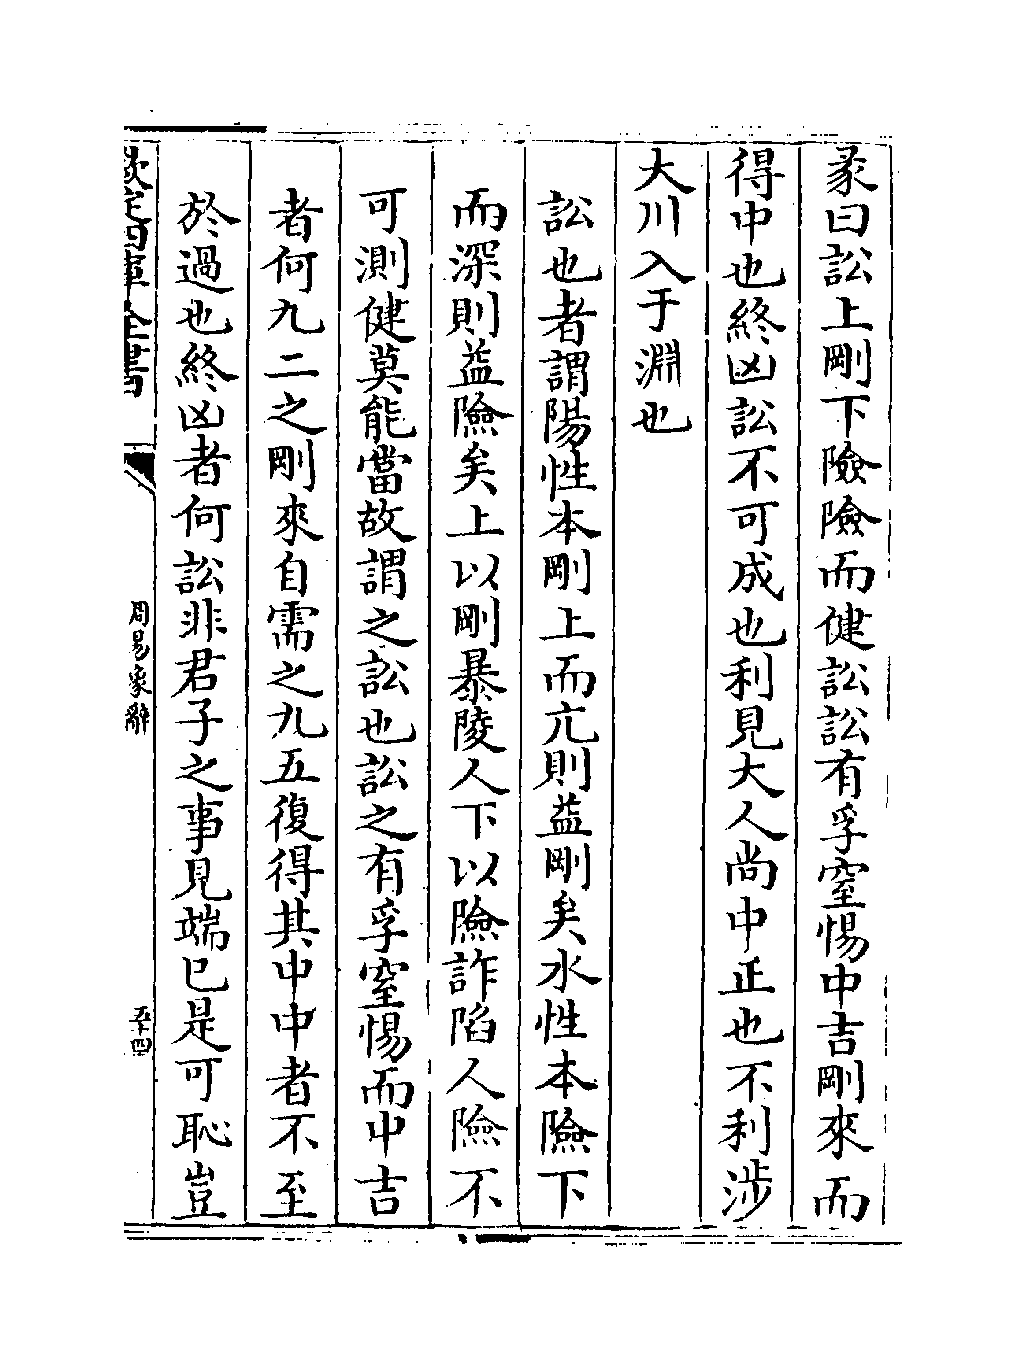 彖曰訟上剛下險險而健訟訟有孚窒惕中吉剛來而
得中也終凶訟不可成也利見大人尚中正也不利涉
大川入于淵也
訟也者謂陽性本剛上而亢則益剛矣水性本險下
而深則益險矣上以剛暴陵人下以險詐陷人險不
可測健莫能當故謂之訟也訟之有孚窒惕而中吉
者何九二之剛來自需之九五復得其中中者不至
於過也終凶者何訟非君子之事見端已是可恥豈
欽定四庫全書
周易象辭
五十四